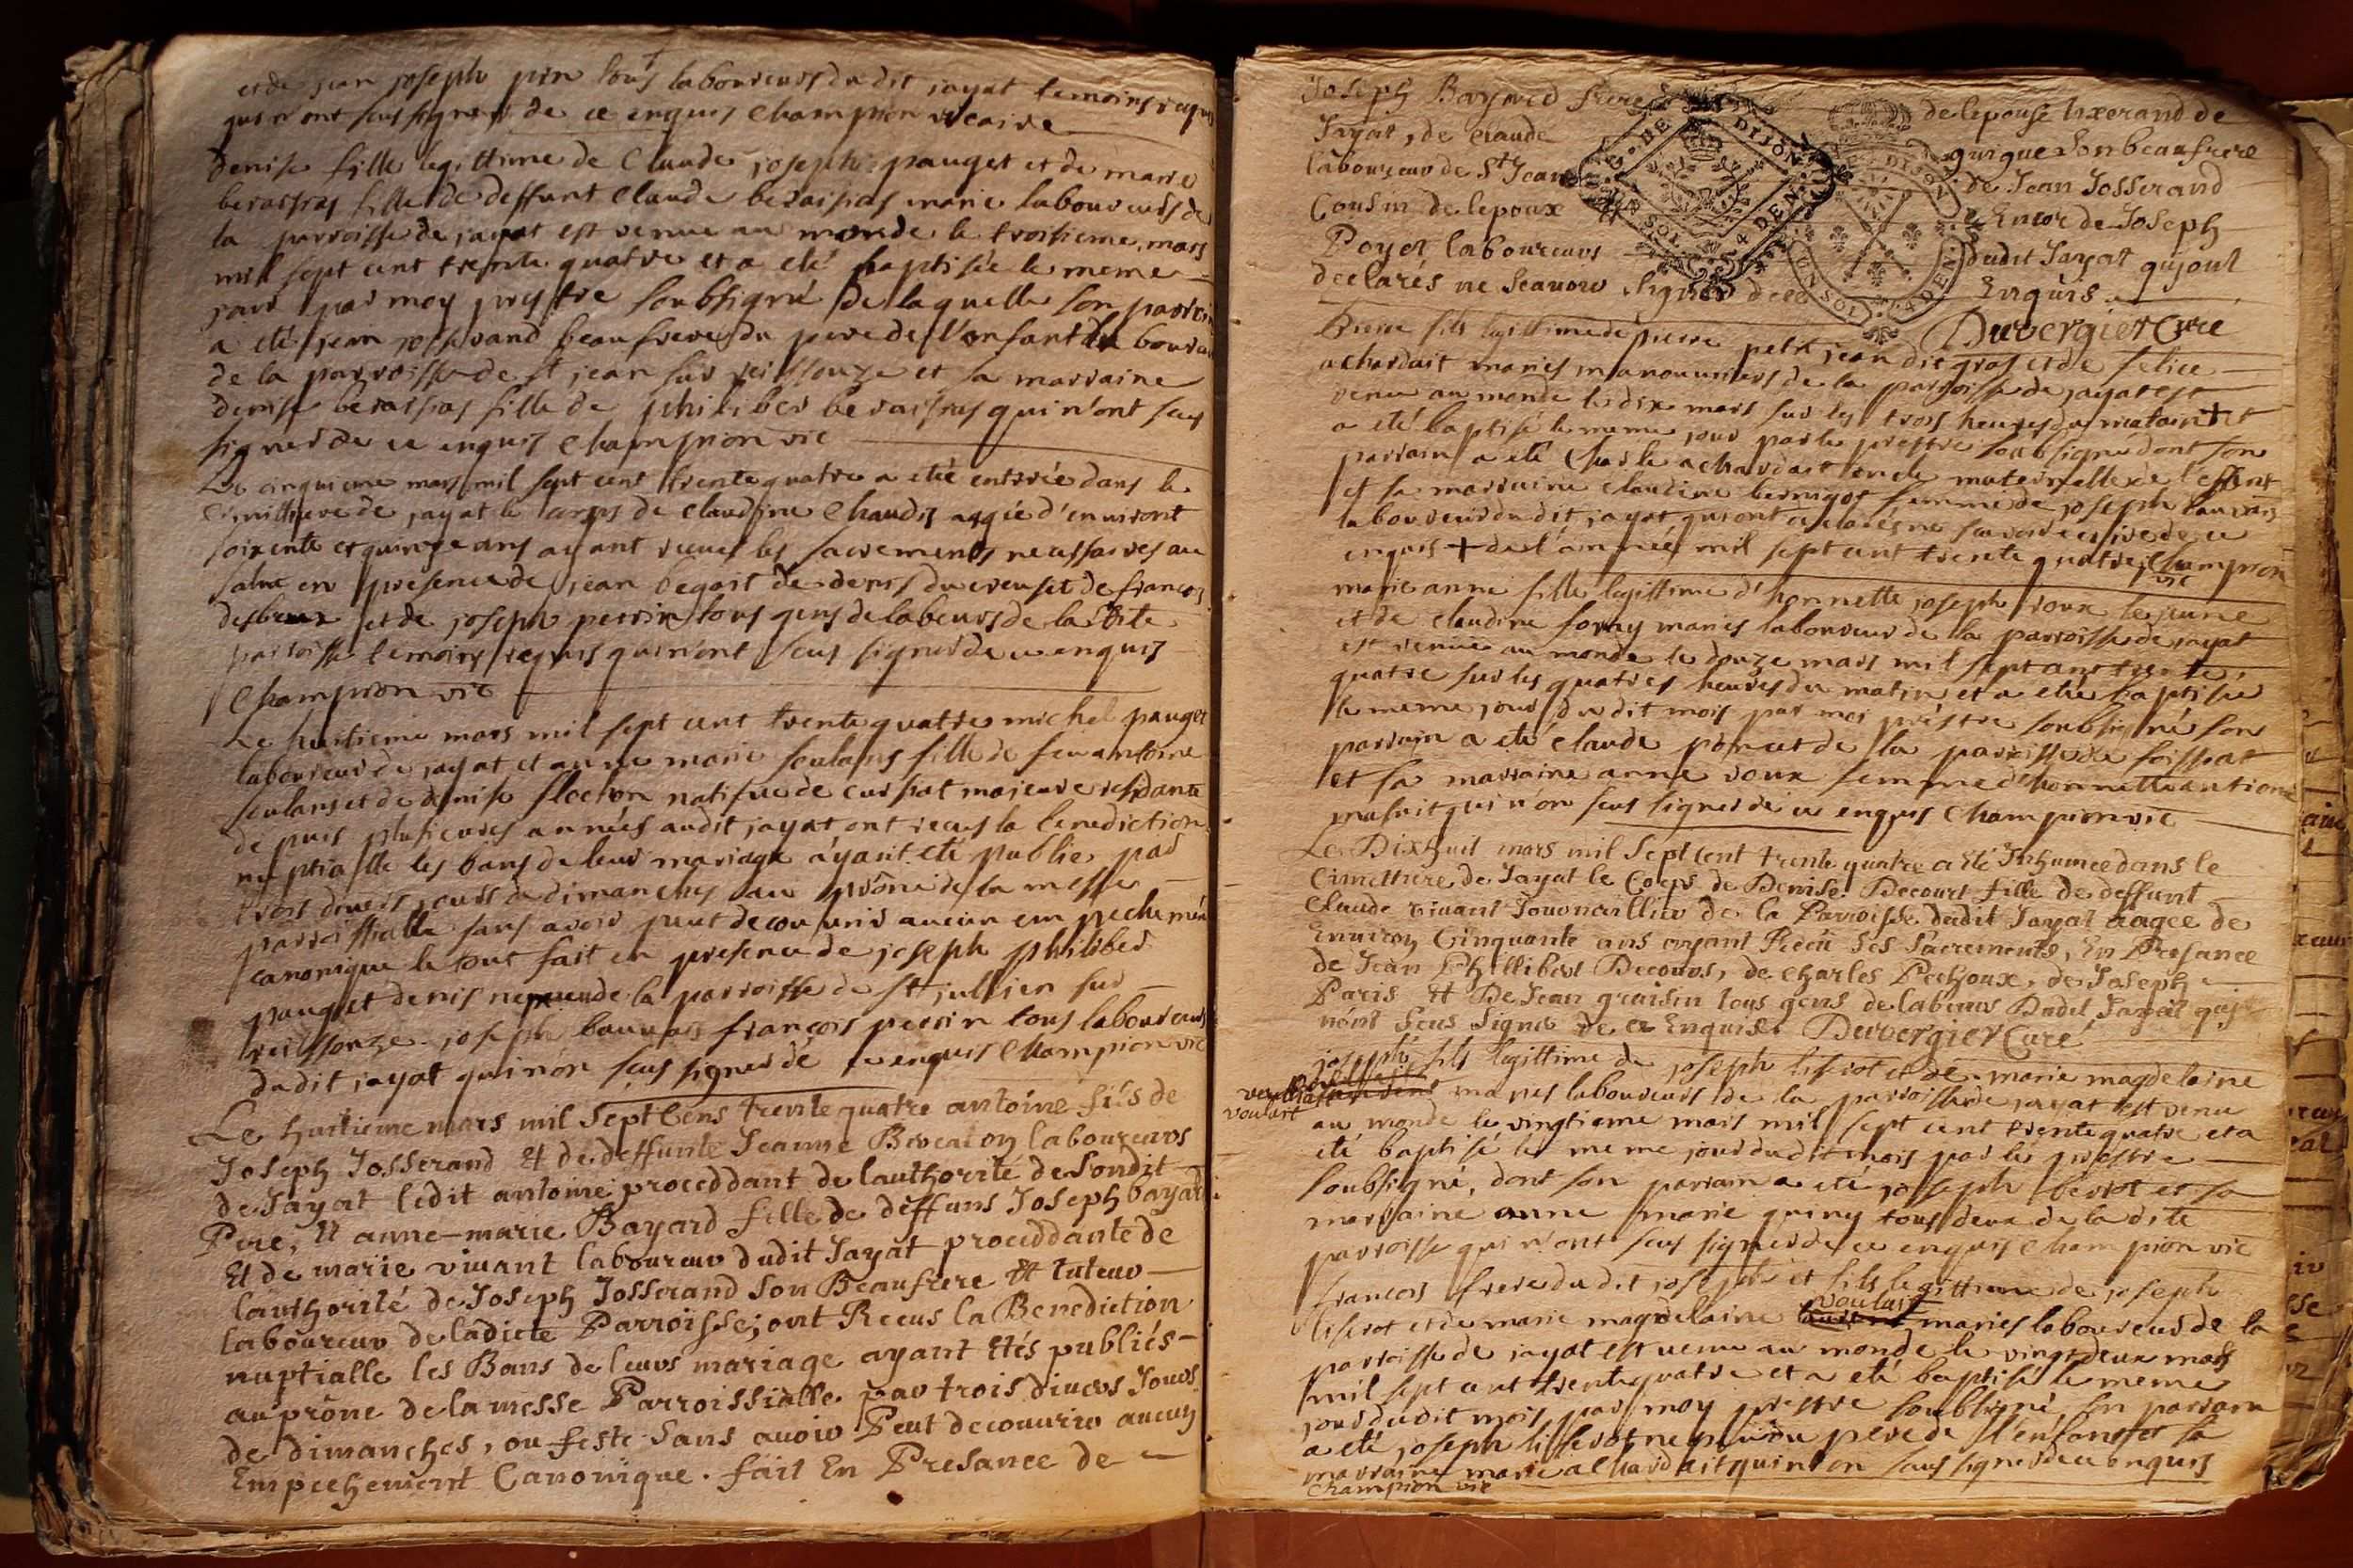 et de jean joseph pin tous laboureurs dudit jayat temoins requis
qui n'ont seus signer de ce enquis Champion vicaire
denise fille legittime de Claude joseph pauget et de marie
beraissas fille de deffunt Claude beraissas maries laboureurs de
la parroisse de jayat est venue au monde le troisieme mars
mil sept cent trente quatre et a eté baptisée le meme
jour par moy prestre soubsigné de laquelle son parrain
a eté jean josserand beaufrere du pere de l'enfant laboureur
de la parroisse de st jean sur reissouze et sa marraine
denise beraissas fille de philiber beraissas qui n'ont seus
signer de ce enquis Champion vic
Le cinquieme mars mil sept cent trente quatre a eté entrée dans le
Cimittiere de jayat le corps de Claudine Chaudis aagée d'environt
soixente et quinze ans ayant recues les sacrements necessaires au
salue en presence de jean begait de denis du creuset de françois
desbeux et de joseph perrin tous gens de labeurs de la dite
parroisse temoins requis qui n'ont seus signer de ce enquis
Champion vic
Le huitieme mars mil sept cent trente quatre michel pauget
laboureur de jayat et anne marie seulans fille de feu antoine
seulans et de denise flochon natifue de cursiat majeure residante
depuis plusieures années audit jayat ont recus la benediction
nuptialle les bans de leur mariage ayant eté publies par
trois divers jours de dimanches au prône de la messe
parroissialle sans avoir peut decouvrir aucun empechement
canonique le tout fait en presence de joseph philiber
pauget denis nepveu de la parroisse de st jullien sur
reissouze joseph bauvais françois perrin tous laboureurs
dudit jayat qui n'on seus signer de ce enquis Champion vic
Le huitieme mars mil Sept Cens trente quatre antoine fils de
Joseph Josserand Et de deffunte Jeanne Brevet on laboureurs
de Jayat ledit antoine proceddant de lauthorité de Sondit
Pere, Et anne-marie Bayard fille de deffuns Joseph bayard
Et de marie vivant laboureur dudit Jayat proceddante de
lauthorité de Joseph Josserand Son Beaufrere Et tuteur
laboureur de ladicte Parroisse; ont Recus la Benediction
nuptialle les Bans de leurs mariage ayant Etés publiés
au prône de la messe Parroissialle par trois divers Jours
de dimanches, ou feste Sans avoir Peut decouvrir aucun
Empechement Canonique. fait En Presance de
Joseph Bayard frere de lepouse
Jayat, de Claude guigue Son beaufrere
laboureur de St Jean de Jean Josserand
Cousin de lepoux Et Encor de Joseph
Poyet laboureurs dudit Jayat qui ont
declarés ne Scauoir signer de ce Enquis
DE DIJON
UN SOL 4 DEN
DE DIJON
UN SOL 4 DEN
Duvergier Curé
fils legittime de pierre petit jean dit gros et de felice
achardait mariés manouvriers de la parroisse de jayat est
venu au monde le dix mars sur les trois heures du matain + et
a eté baptisé le meme jour par le prestre soubsigné dont son
parrain a eté Charle achardait oncle maternelle de l'enfent
et sa marraine Claudine bernigot femme de joseph bauvais
laboureur dudit jayat qui ont declarés ne scavoir escrire de ce
enquis + de l'année mil sept cent trente quatre Champion
vic
marie anne fille legittime d'honnette joseph roux le jeune
et de Claudine forey maries laboureur de la parroisse de jayat
est venue au monde le douze mars mil sept cent trente
quatre sur les quatres heures du matin et a eté baptisée
le meme jour du dit mois par moi préstre soubsigné son
parrain a eté Claude poncet de la parroisse de foissiat
et sa marraine anne roux femme d'honnette antione
qui n'on seus signer de ce enquis Champion vic
Le Dixhuit mars mil Sept Cent trente quatre a Eté Inhumée dans le
Cimettiere de Jayat le Corps de Denise Decourt fille de deffunt
Claude vivant Journaillier de la Parroisse dudit Jayat aagée de
Environ Cinquante ans ayant Recéu Ses Sacrements, En Presance
de Jean Phillibert Decours, de Charles Pechoux, de Joseph
Paris Et De Jean graisin tous gens de labeurs Dudit Jayat qui
n'ont Seus Signer de ce Enquise. Duvergier Curé
joseph fils legittime de joseph liserot et de marie magdelaine
voulart maries laboureurs de la parroisse de jayat est venu
au monde le vingtieme mars mil sept cent trente quatre et a
eté baptisé le meme jour dudit mois par le prestre
soubsigné, dont son parrain a eté joseph liserot et sa
marraine anne marie quiny tous deux de la dite
parroisse qui n'ont seus signer de ce enquis Champion vic
francois frere du dit joseph et fils legittime de joseph
liserot et de marie magdelaine voulart maries laboureurs de la
parroisse de jayat est venu au monde le vingt deux mars
mil sept cent trente quatre et a eté baptisé le meme
jour dudit mois par moy prestre soubsigné, son parrain
a eté joseph lisserot nepveu du pere de l'enfant et sa
marraine marie achardait qui n'on seus signer de ce enquis
Champion vic